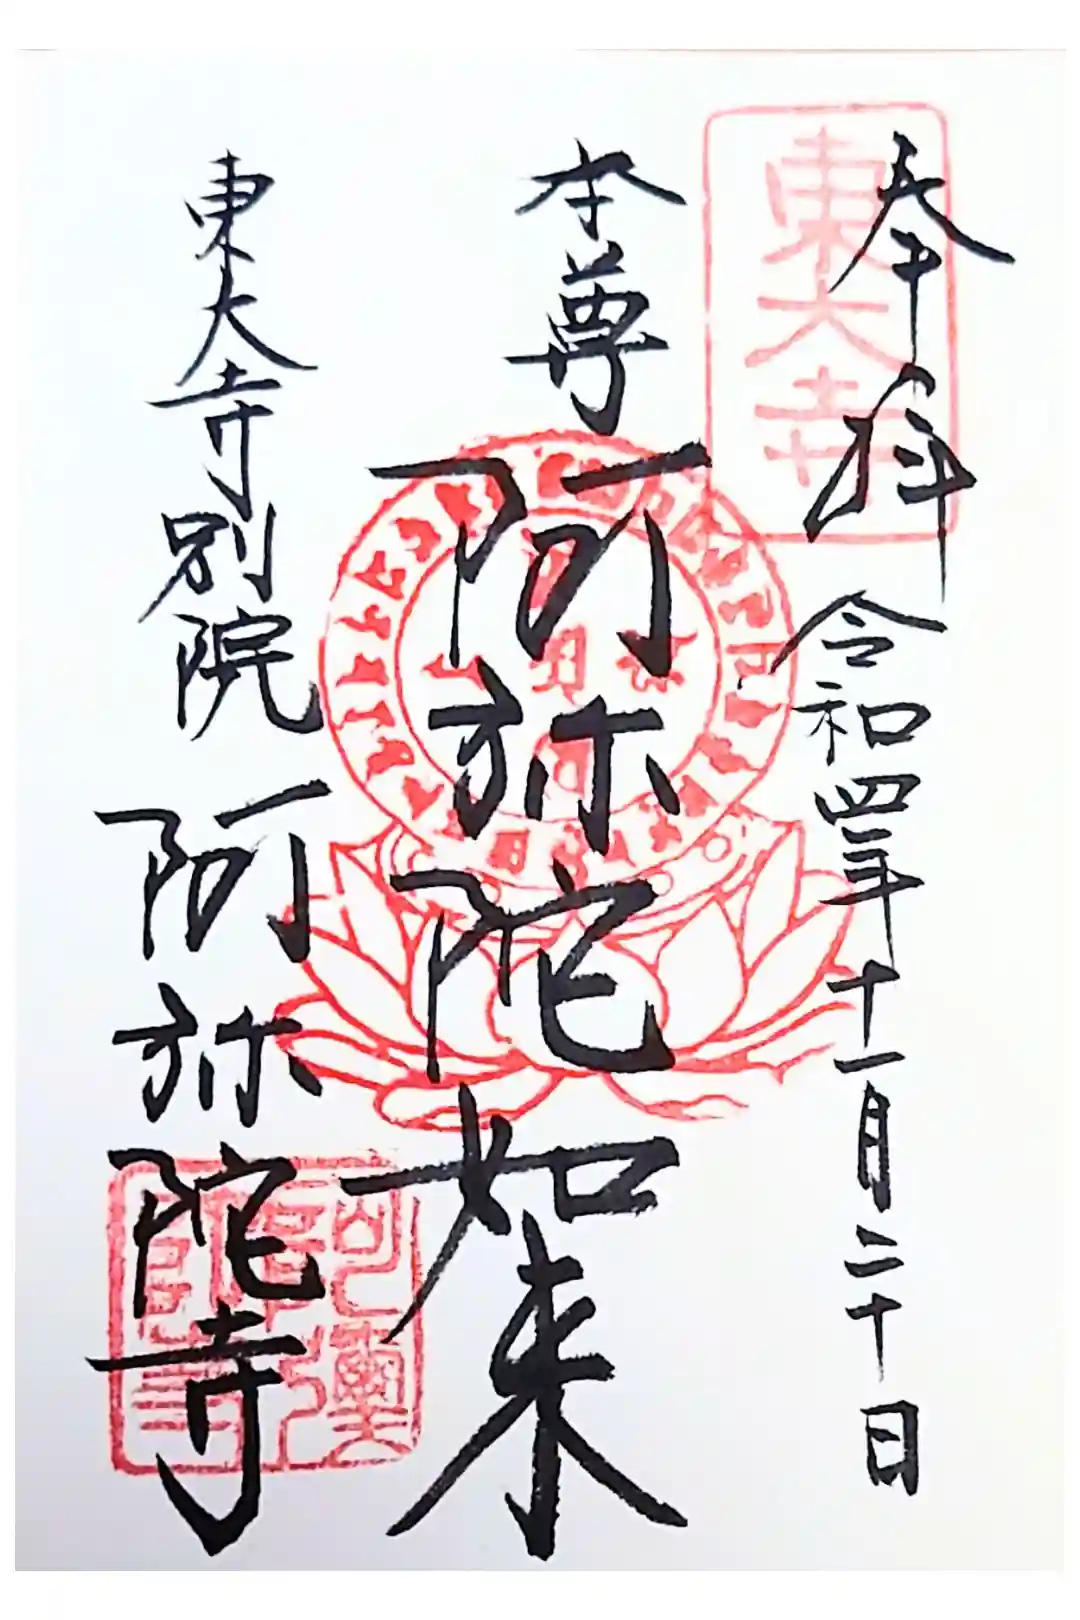 奉拝 令和四年十一月二十日
本尊 阿弥陀如来
東大寺別院 阿弥陀寺
東大寺